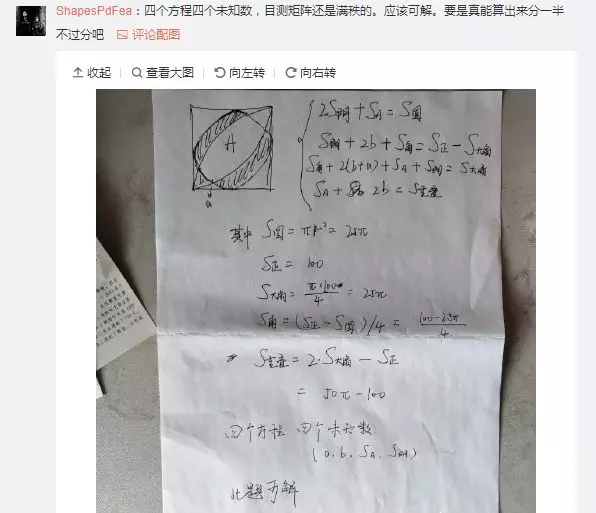 ShapesPdFea：四个方程四个未知数，目测矩阵还是满秩的。应该可解。要是真能算出来分一半
不过分吧 评论配图
收起 查看大图 向左转 向右转
A
a
2S阴+SA=S圆
S阴+2b+S角=S正-S大扇
S角+2(b+a)+SA+S阴=S大扇
SA+ 2b=S重叠
其中 S圆=πr²=25π
S正=100
S大扇=π·100/4=25π
S角=(S正-S圆)/4=(100-25π)/4
S重叠=2·S大扇-S正
=50π-100
四个方程 四个未知数
(a,b,SA,S阴)
此题可解